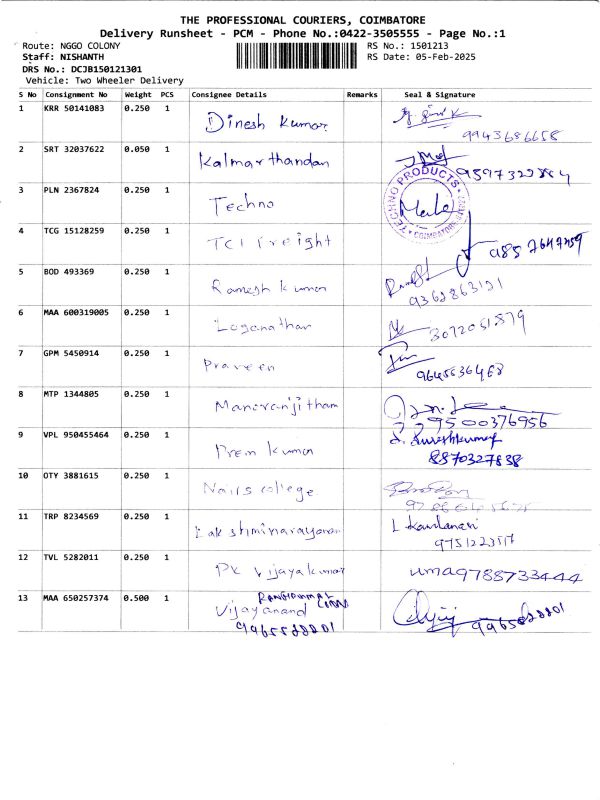 THE PROFESSIONAL COURIERS, COIMBATORE
Delivery Runsheet - PCM - Phone No.:0422-3505555 - Page No.:1
Route: NGGO COLONY RS No.: 1501213
Staff: NISHANTH RS Date: 05-Feb-2025
DRS No.: DCJB150121301
Vehicle: Two Wheeler Delivery
S No Consignment No Weight PCS Consignee Details Remarks Seal & Signature
1 KRR 50141083 0.250 1 Dinesh Kumar 9943686658
2 SRT 32037622 0.050 1 Kalmarthandan
3 PLN 2367824 0.250 1 Techno TECHNO PRODUCTS
4 TCG 15128259 0.250 1 TCI Freight
5 BOD 493369 0.250 1 Ramesh Kumar 9362863121
6 MAA 600319005 0.250 1 Loganathan
7 GPM 5450914 0.250 1 Praveen
8 MTP 1344805 0.250 1 Manoranjitham 9500376956
9 VPL 950455464 0.250 1 Prem Kumar S. Sureshkumar
8870327838
10 OTY 3881615 0.250 1 Nairs college
11 TRP 8234569 0.250 1 Lakshminarayanan
12 TVL 5282011 0.250 1 PK Vijayakumar uma9788733444
13 MAA 650257374 0.500 1 Vijayanand
9965528801 9965528801